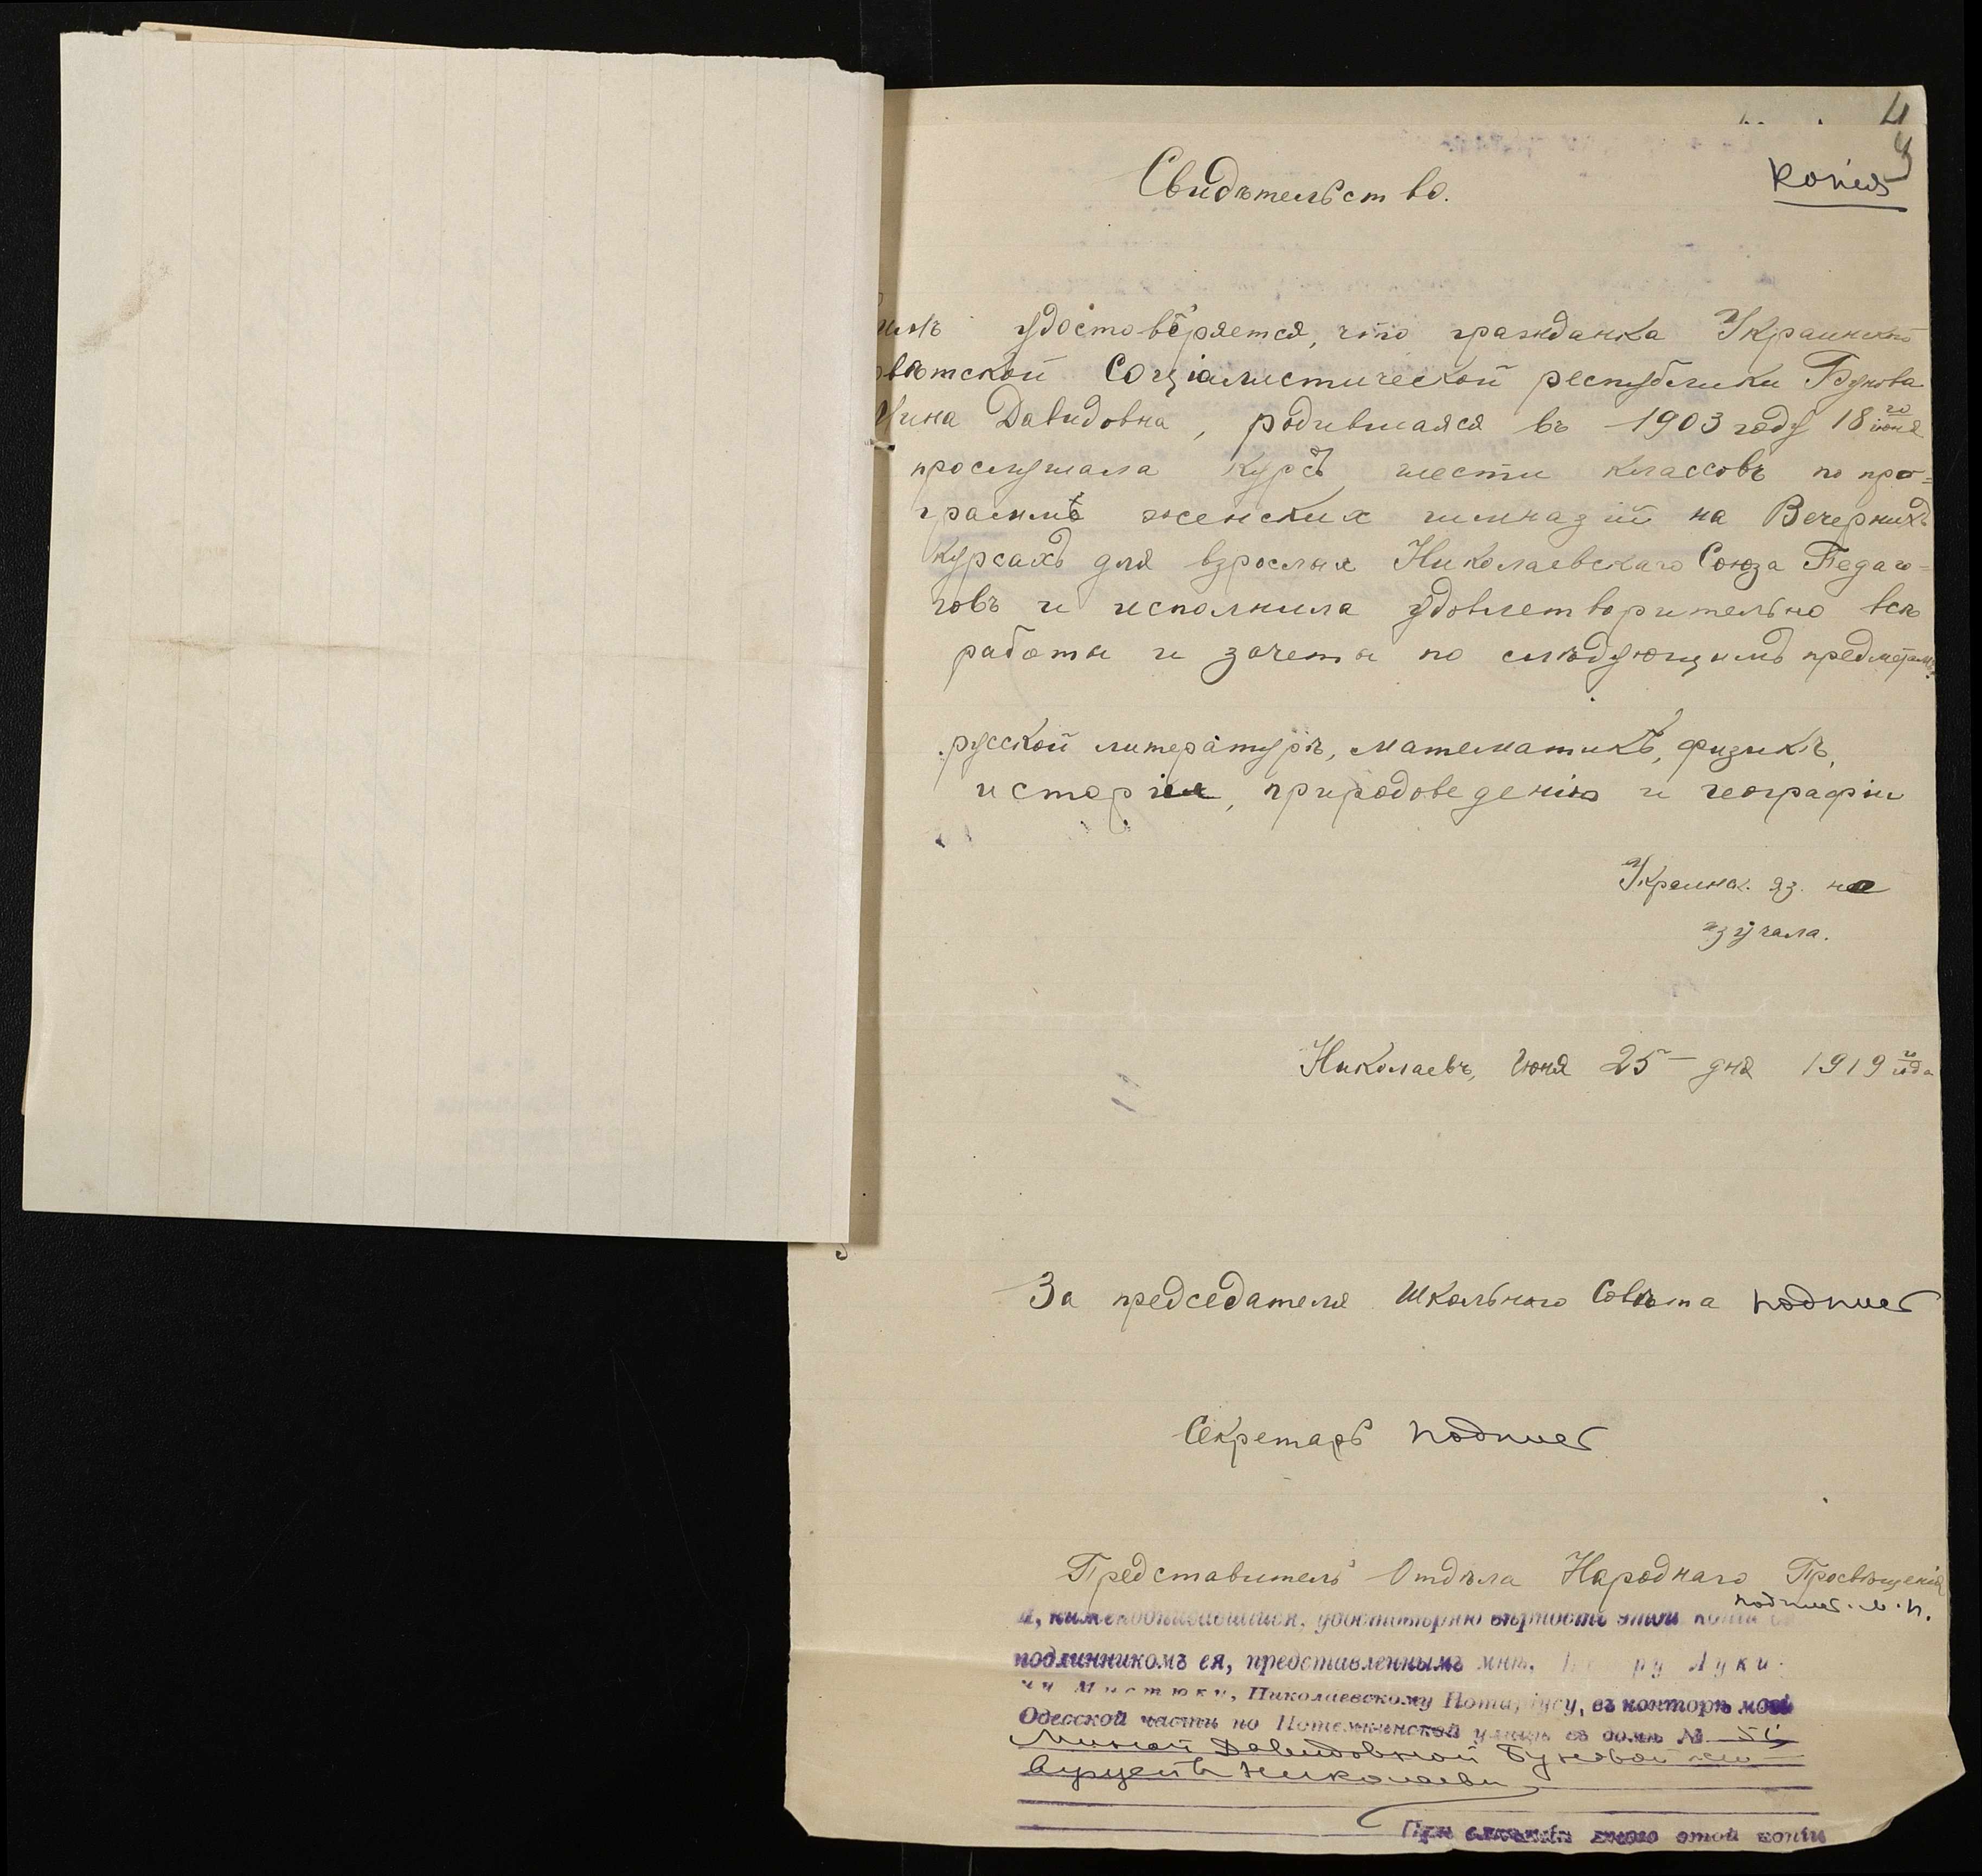 4
Копія
Свидѣтельство.
удостовѣряется, что гражданка Украинской
Соціалистической республики Бунова
Мина Давидовна, родившаяся въ 1903 году 18го іюня
прослушала курсъ шести классовъ по про=
граммѣ женских гимназій на Вечернихъ
курсахъ для взрослых Николаевскаго Союза Педаго=
говъ и исполнила удовлетворительно всѣ
работы и зачеты по слѣдующимъ предметамъ:
русской литературѣ, математикѣ, физикѣ,
исторіи, природоведенію и географіи
Украинск. яз. не
изучала.
Николаевъ, Іюня 25 дня 1919 го года
За председателя Школьного Совѣта подпись
Секретарь подпись
Представитель Отдѣла Народнаго Просвѣщенія
подпись. М. П.
Я, нижеподписавшійся, удостовѣряю вѣрность этой копіи съ
подлинникомъ ея, представленнымъ мнѣ, Луки
Николаевскому Нотаріусу, въ конторѣ моей
Одесской части по Потемкинской улицѣ въ домѣ №
Миной Давидовной Буновой
Николаевѣ
При сличеніи мною этой копіи